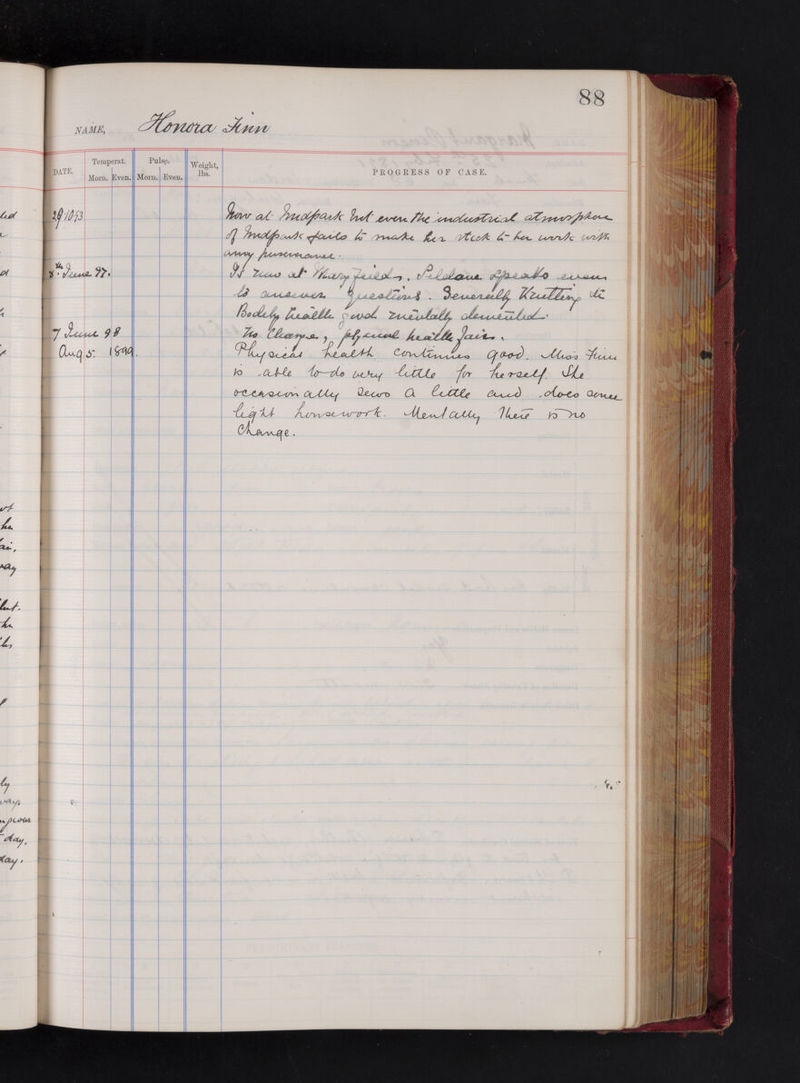 88
NAME, Honora Finn
DATE. Temperat. Morn. Even. Pulse. Morn. Even. Weight, lbs. PROGRESS OF CASE.
Now at Mudpark but even the industrial atmosphere
of Mudpark fails to make her stick to her work with
any perseverance.
8th June 97. Is now at Maryfield. Seldom speaks even
to answer questions. Generally Knitting &c
Bodily health good mentally demented.
7 June 98 No Change, physical health fair.
Aug 5 1899. Physical health continues good. Miss Finn
is able to do very little for herself She
occasionally sews a little and does some
light housework. Mentally there is no
Change.
ly
day.
day.